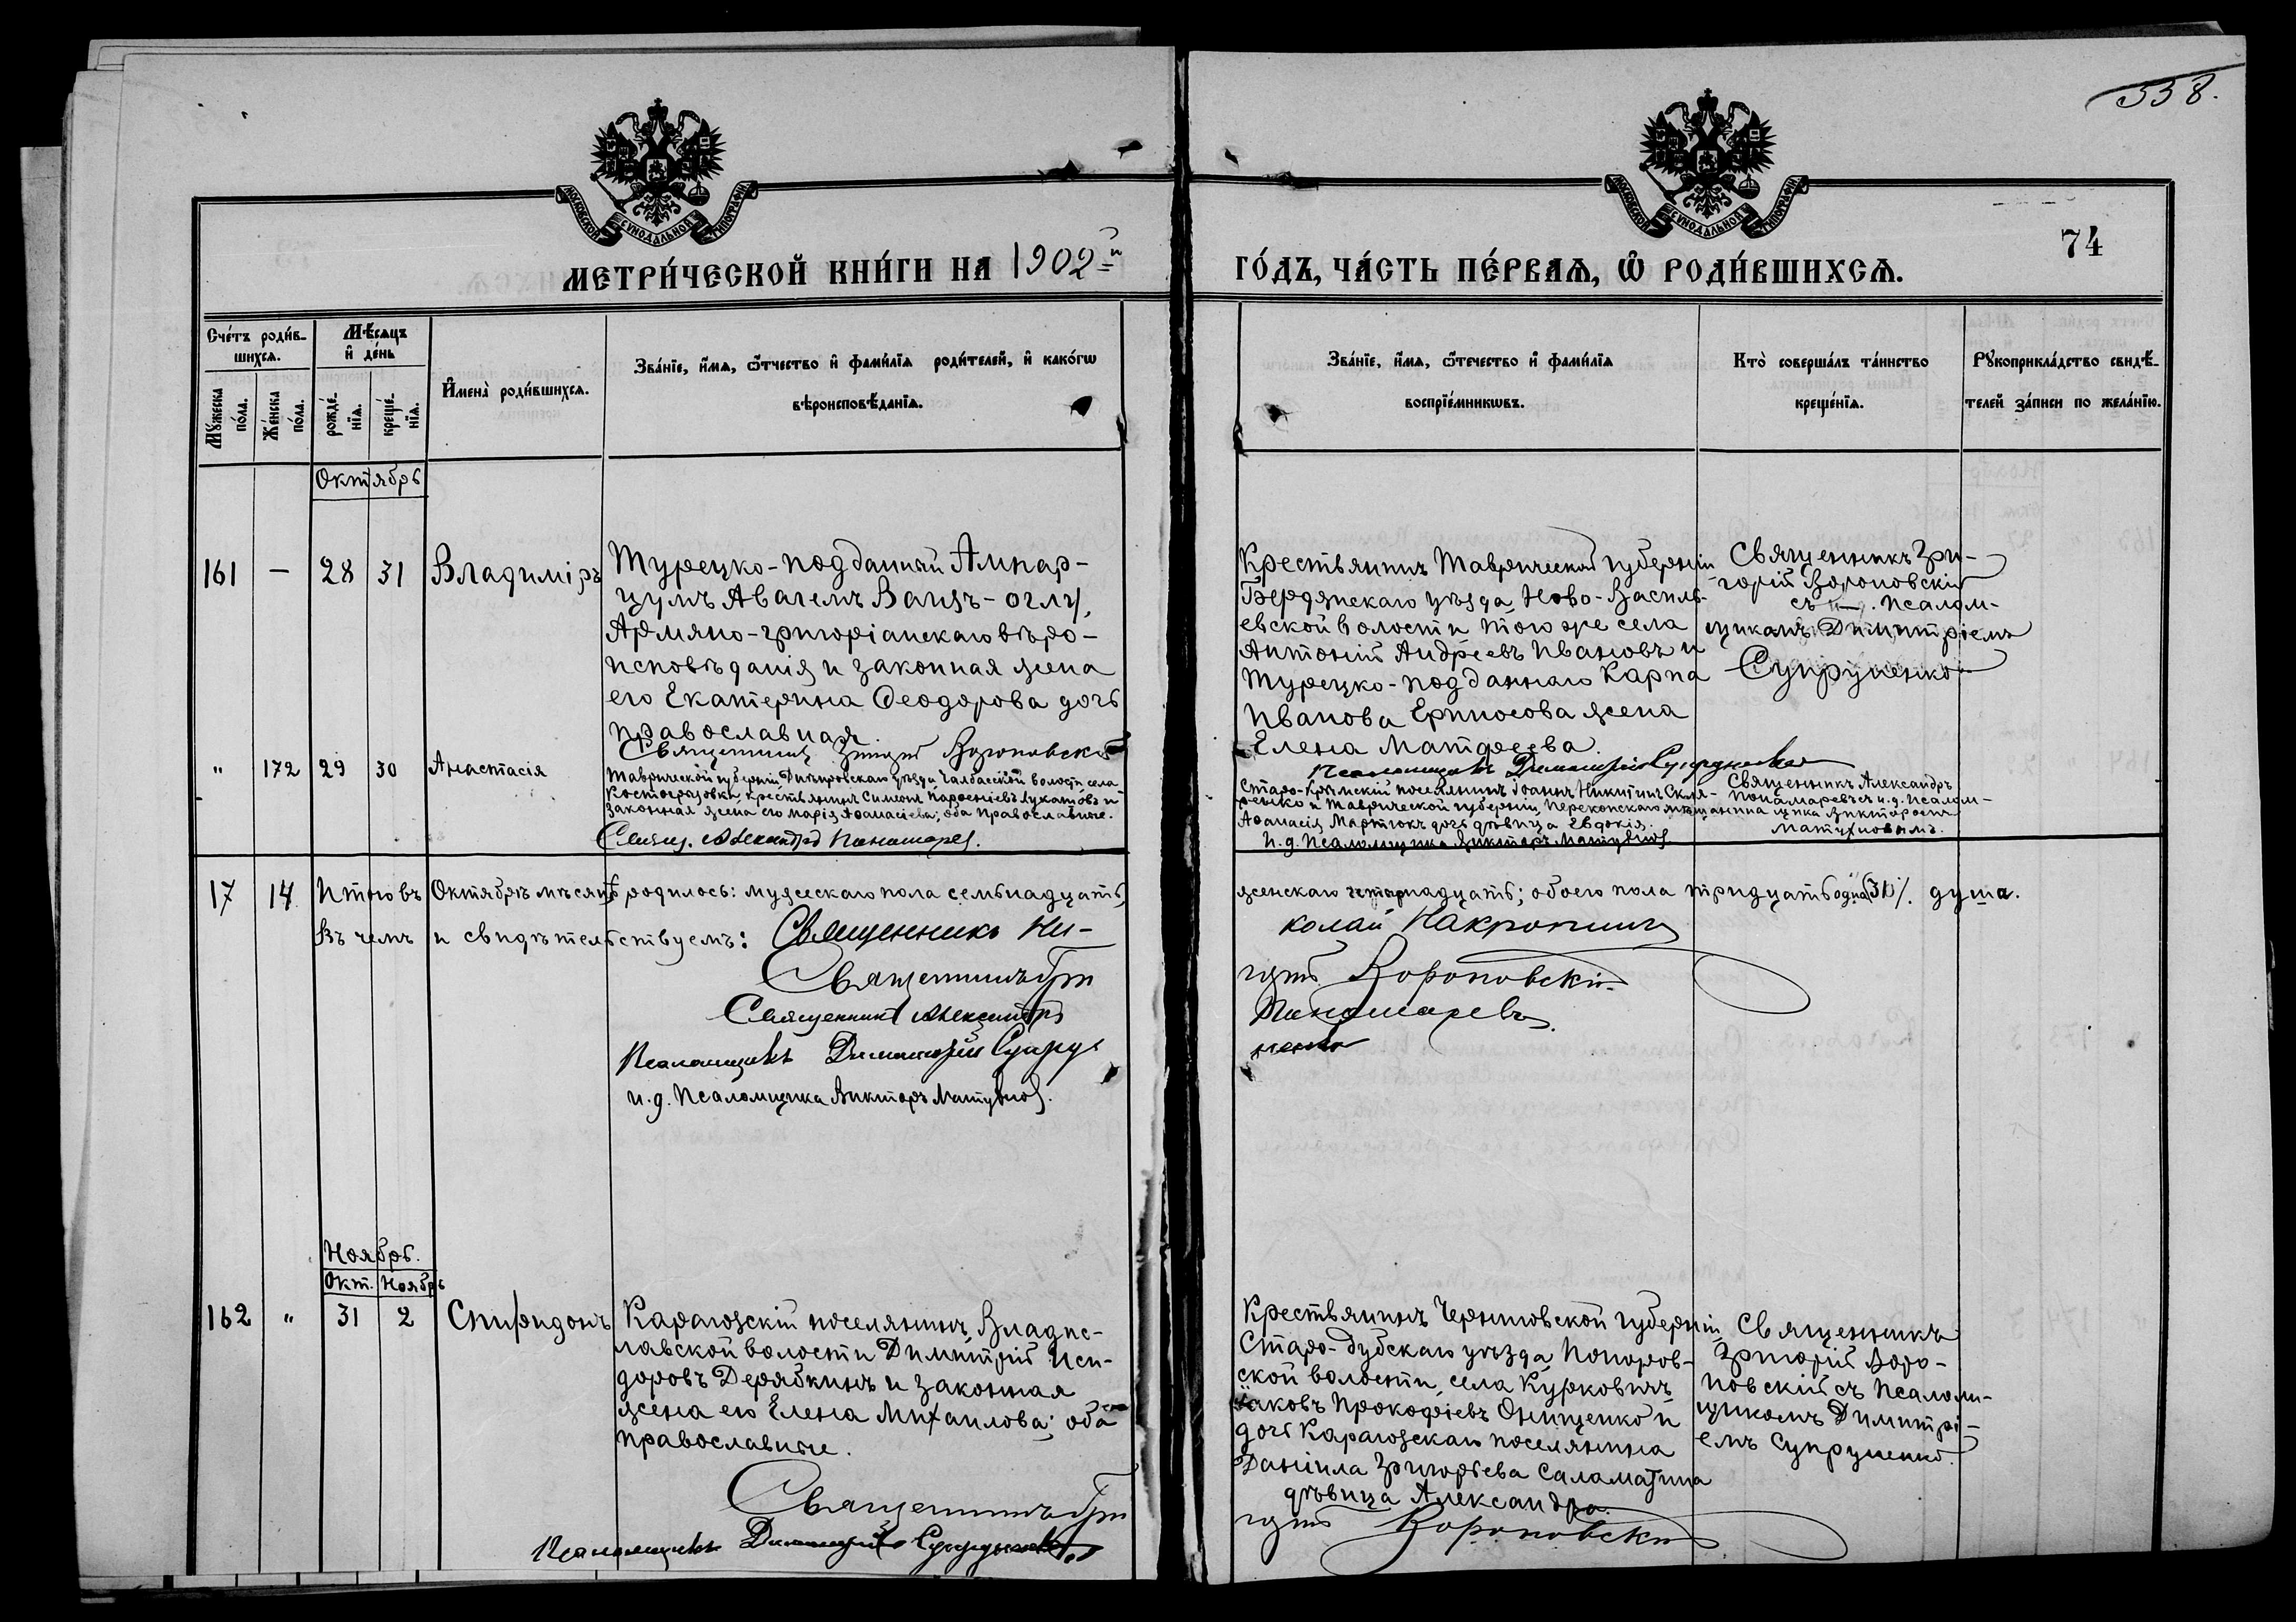 338.
МОСКОВСКОЙ СѴНОДАЛЬНОЙ ТИПОГРАФІИ
МОСКОВСКОЙ СѴНОДАЛЬНОЙ ТИПОГРАФІИ
74
МЕТРИ́ЧЕСКОЙ КНИ́ГИ НА 1902=й
ГО́ДЪ, ЧА́СТЬ ПЕ́РВАѦ, Ѡ РОДИ́ВШИХСѦ.
Сче́тъ роди́в-
шихсѧ.
Мꙋ́жеска по́ла.
Же́нска по́ла.
Мѣ́сѧцъ
и҆ де́нь
рожде́-нїѧ.
креще́-нїѧ.
И҆мена̀ роди́вшихсѧ.
Зва́нїе, и҆́мѧ, ѻ҆́тчество и҆ фами́лїѧ роди́телей, и҆ како́гѡ
вѣроисповѣ́данїѧ.
Зва́нїе, и҆́мѧ, ѻ҆те́чество и҆ фами́лїѧ
воспрїе́мникѡвъ.
Кто̀ соверша́лъ та́инство
креще́нїѧ.
Рꙋкоприкла́дство свидѣ́-
телей за́писи по жела́нїю.
Октябрь
161 — 28 31 Владиміръ
Турецко-подданный Ампар-
цумъ Авагемъ Ванзъ-оглу,
Армяно-григоріанскаго вѣро-
исповѣданія и законная жена
его Екатерина Ѳеодорова дочь
православная
Священникъ Григорій Вороновскій
Крестьянинъ Таврической губерніи
Бердянскаго уѣзда, Ново-Василь-
евской волости того же села
Антоній Андреевъ Ивановъ и
Турецко-подданнаго Карпа
Иванова Ерипосова жена
Елена Матѳеева.
Псаломщикъ Димитрій Супруненко
Священникъ Гри-
горій Вороновскій
съ псалом-
щикомъ Димитріемъ
Супруненко
" 172 29 30 Анастасія
Таврической губерніи, Днѣпровскаго уѣзда, Чалбасской волости, села
Костогрызовки, крестьянинъ Симеонъ Парѳеніевъ Лукатовъ и
законная жена его Марія Аѳанасіева; оба православные.
Священ. Александръ Пономарев.
Старо-Крымскій поселянинъ Іоаннъ Никитинъ Скля-
ренко и Таврической губерніи, Перекопскаго мѣщанина
Аѳанасія Мартюкъ дочь дѣвица Евдокія.
И. д. Псаломщика Викторъ Матухнов.
Священникъ Александръ
Понамаревъ съ и. д. псалом-
щика Викторомъ
Матухновымъ.
17 14 Итого въ Октябрѣ мѣсяцѣ родилось: мужескаго пола семьнадцать,
женскаго четырнадцать; обоего пола тридцать одна (31). душа.
Въ чемъ и свидѣтельствуемъ: Священникъ Ни-
колай Макропинъ
Священникъ Гри
горій Вороновскій
Священникъ Александръ
Пономаревъ.
Псаломщикъ Димитрій Супру-
ненко
и. д. Псаломщика Викторъ Матухнов.
Ноябрь.
Окт. Ноябрь
162 " 31 2 Спиридонъ
Карагозскій поселянинъ, Владис-
лавской волости Димитрій Иси-
доровъ Дерябкинъ и законная
жена его Елена Михаилова; оба
православные.
Священникъ Гри
горій Вороновскій
Псаломщикъ Димитрій Супруненко
Крестьянинъ Черниговской губерніи,
Старо-дубскаго уѣзда, Понуров-
ской волости, села Курковичъ
Іаковъ Прокофіевъ Онищенко и
дочь Карагозскаго поселянина
Даніила Григорьева Саламатина
дѣвица Александра.
Священникъ
Григорій Воро-
новскій съ псалом-
щикомъ Димитрі-
емъ Супруненко.